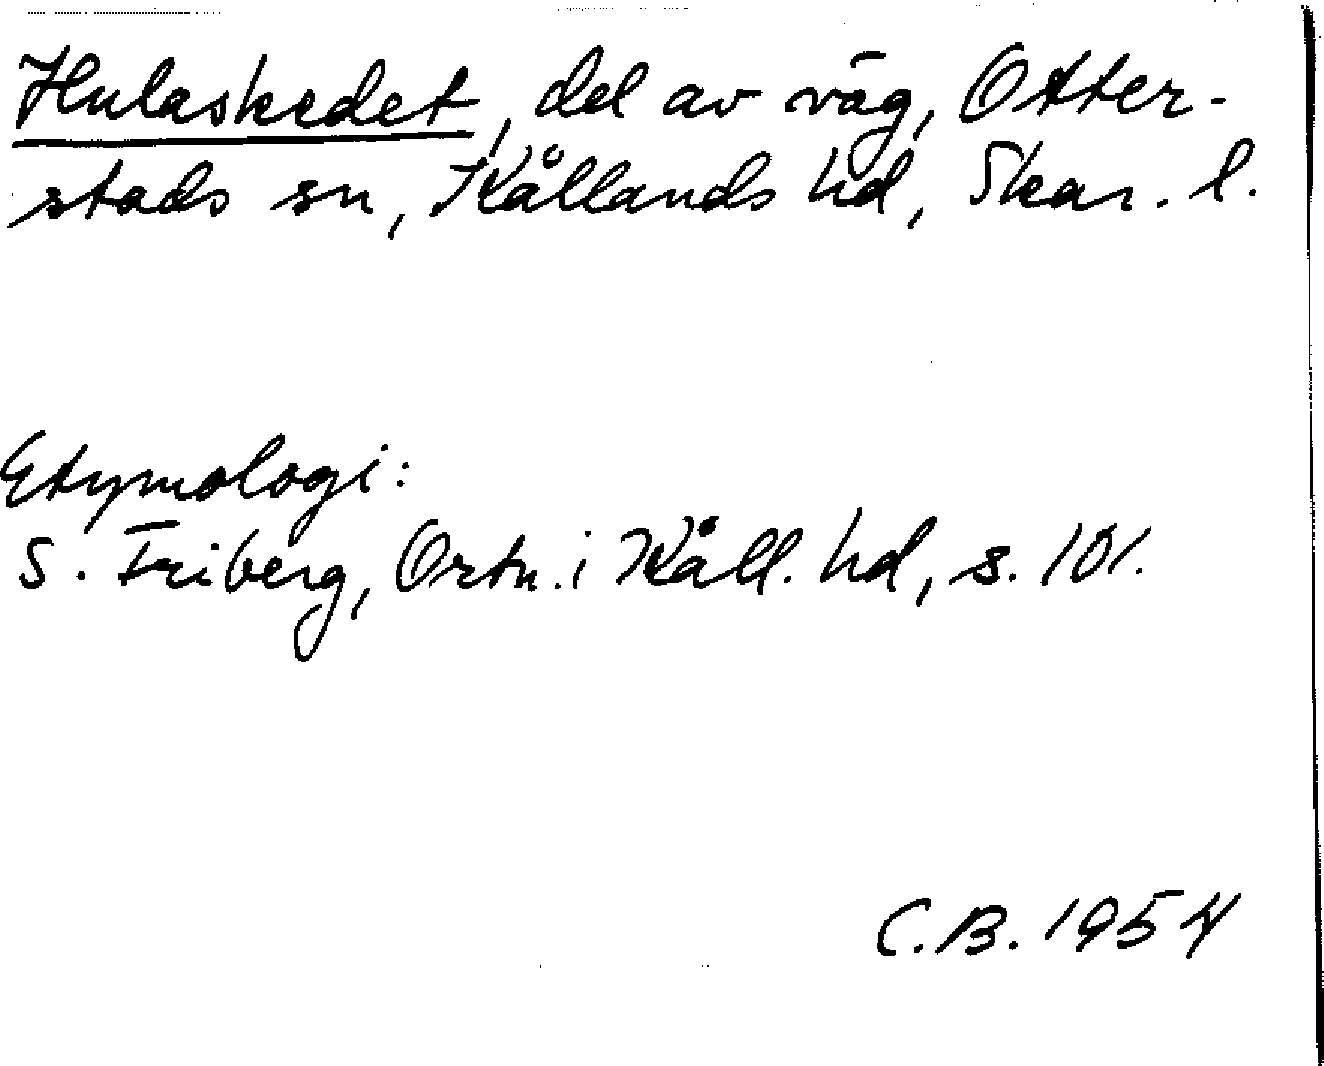 Hulaskedet, del av väg, Otter-
stads sn, Kållands hd, Skar. l.
Etymologi:
S. Friberg, Ortn. i Kåll. hd, s. 101.
C.B. 1954